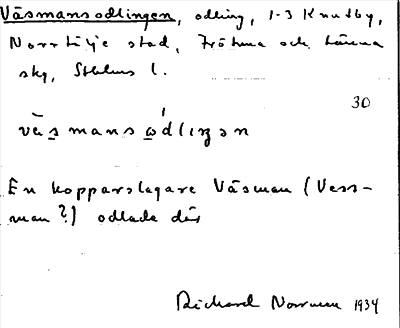 Väsmansodlingen, odling, 1-3 Knutby,
Norrtälje stad, Frötuna och Länna
skg, Sthlms l.
30
väsmansodlingen
En kopparslagare Väsman (Vess-
man?) odlade där
Richard Norman 1934